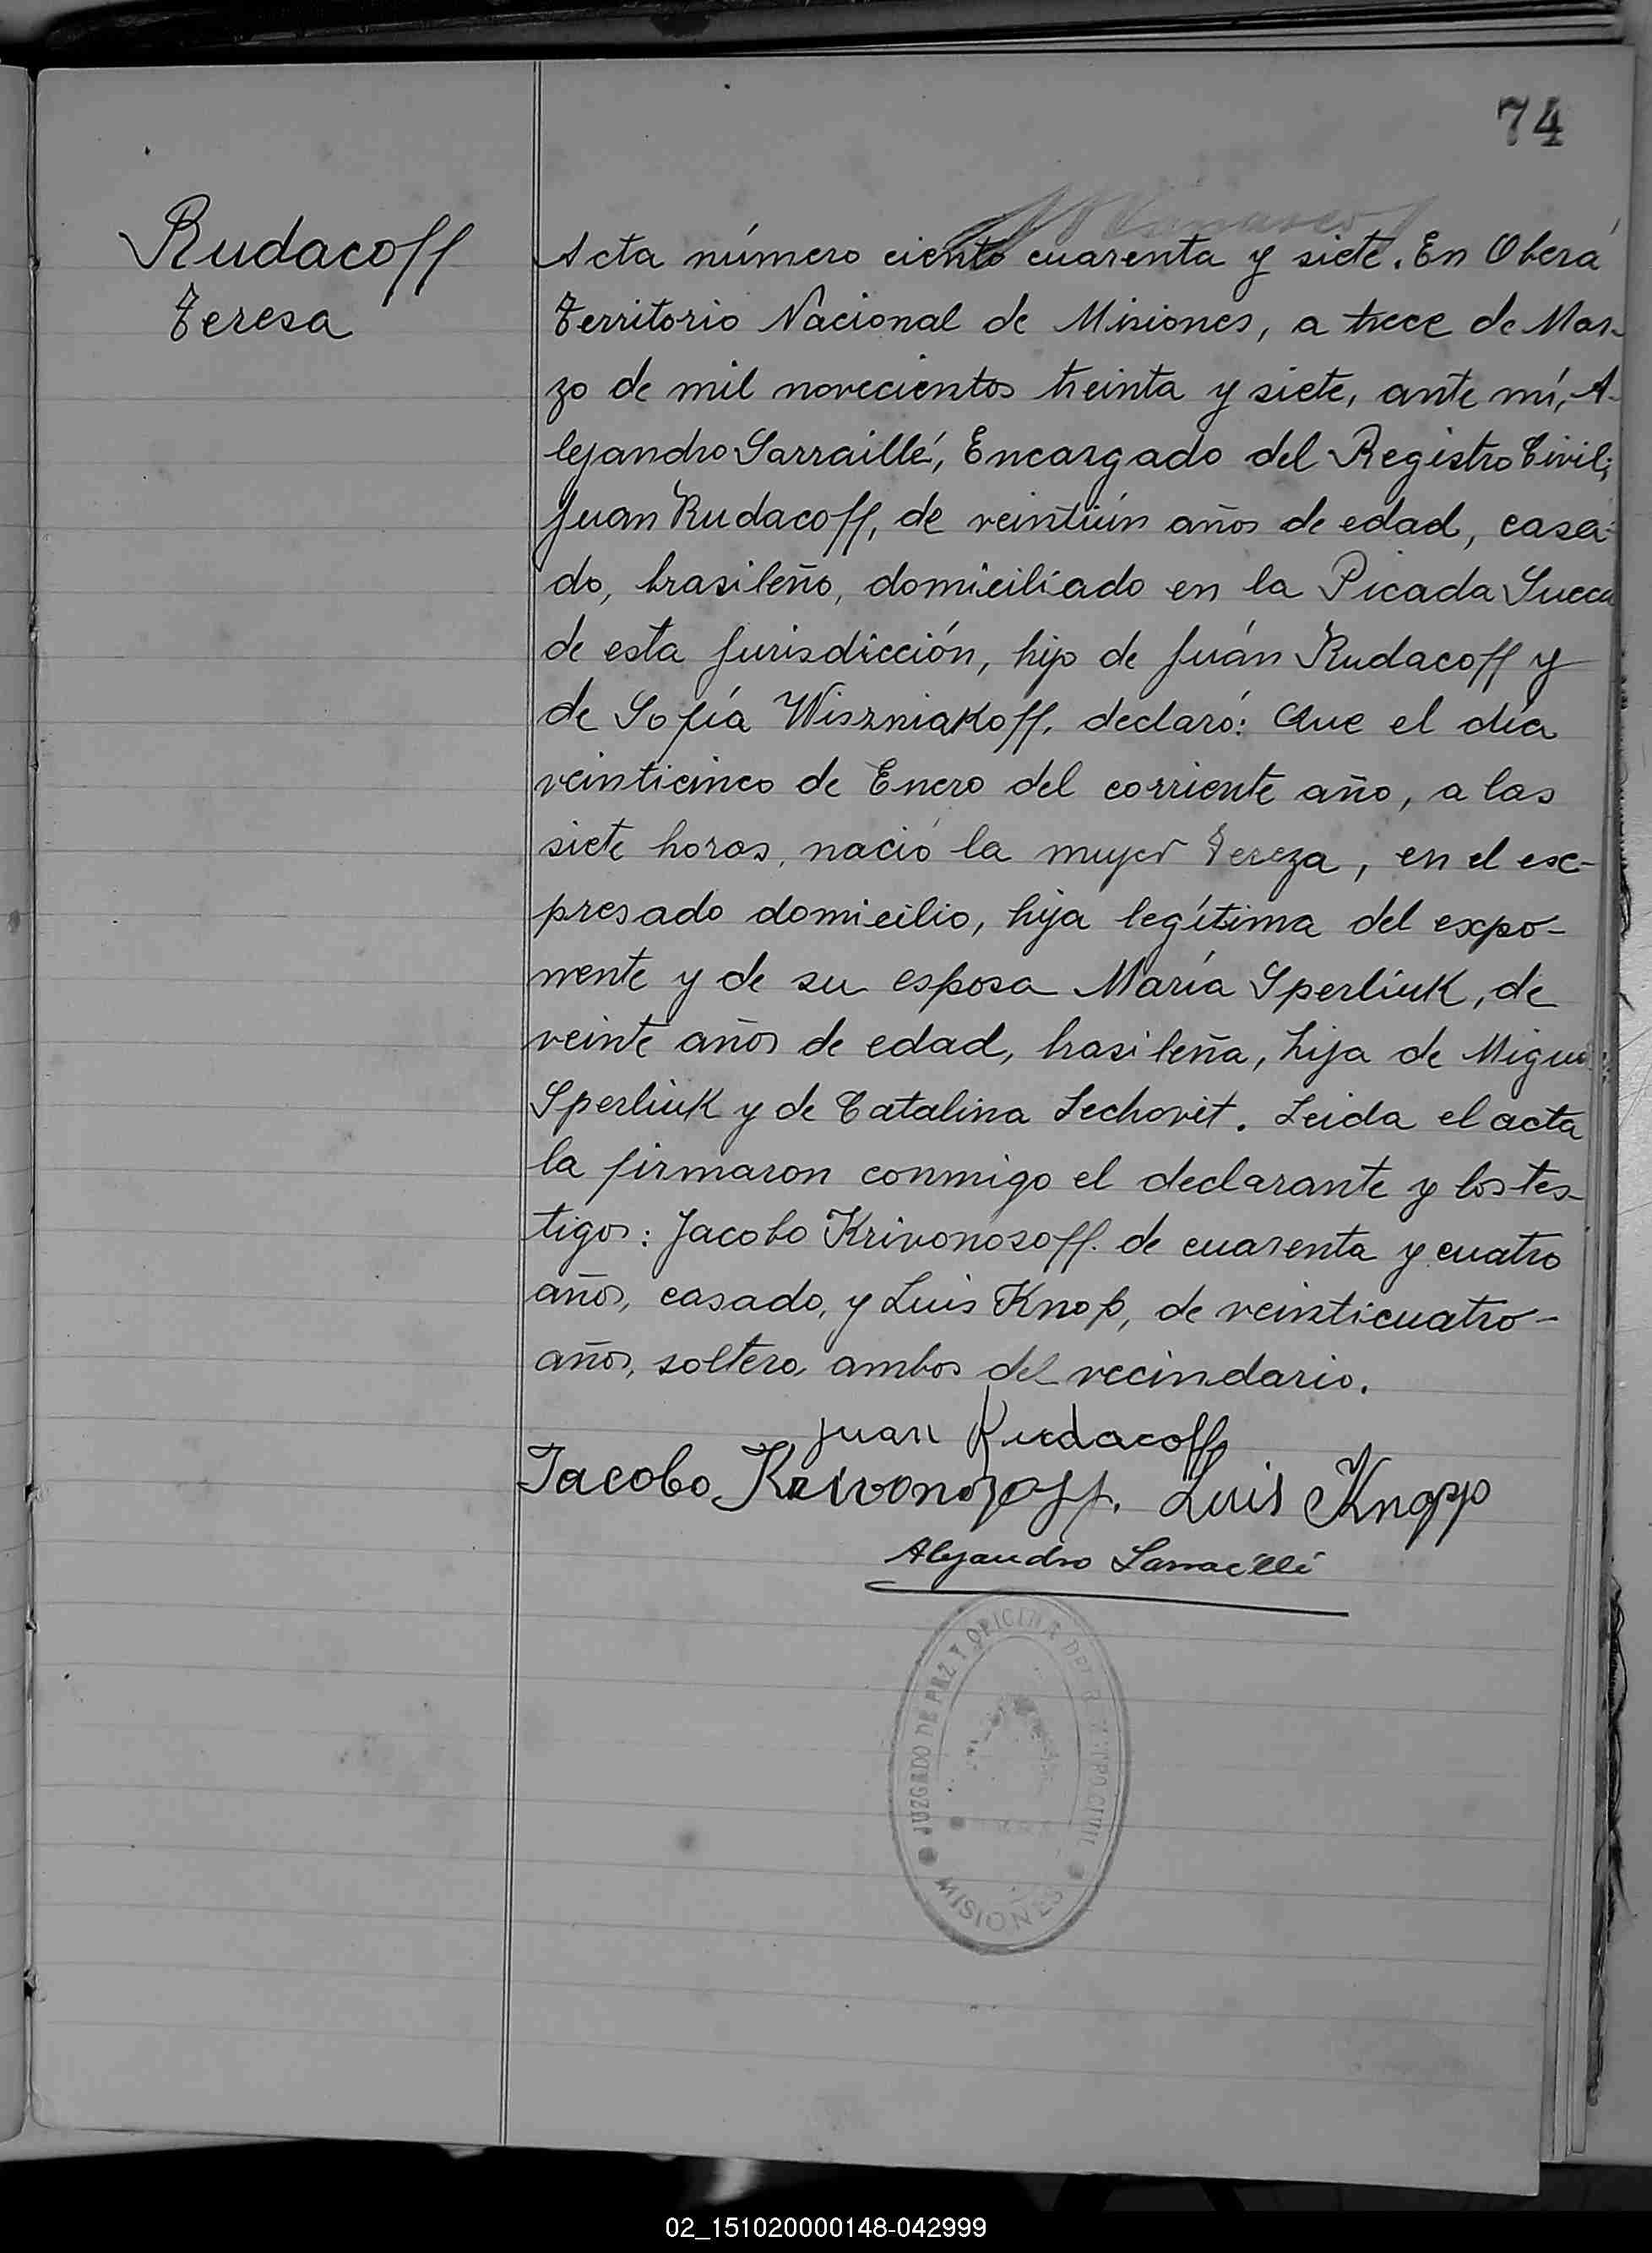 74
Rudacoff
Teresa
Acta número ciento cuarenta y siete. En Oberá
Territorio Nacional de Misiones, a trece de Mar-
zo de mil novecientos treinta y siete, ante mí, A-
lejandro Sarraillé, Encargado del Registro Civil;
Juan Rudacoff, de veintiún años de edad, casa-
do, brasileño, domiciliado en la Picada Sueca
de esta Jurisdicción, hijo de Juán Rudacoff y
de Sofía Wiszniakoff, declaró: Que el día
veinticinco de Enero del corriente año, a las
siete horas, nació la mujer Tereza, en el ex-
presado domicilio, hija legítima del expo-
nente y de su esposa María Sperliuk, de
veinte años de edad, brasileña, hija de Miguel
Sperliuk y de Catalina Lechovit. Leida el acta
la firmaron conmigo el declarante y los tes-
tigos: Jacobo Krivonosoff. de cuarenta y cuatro
años, casado, y Luis Knop, de veinticuatro-
años, soltero, ambos del vecindario.
Juan Rudacoff
Jacobo Krivonozoff. Luis Knopp
Alejandro Sarraillé
JUZGADO DE PAZ Y OFICINA DEL REGISTRO CIVIL
MISIONES
02_151020000148-042999